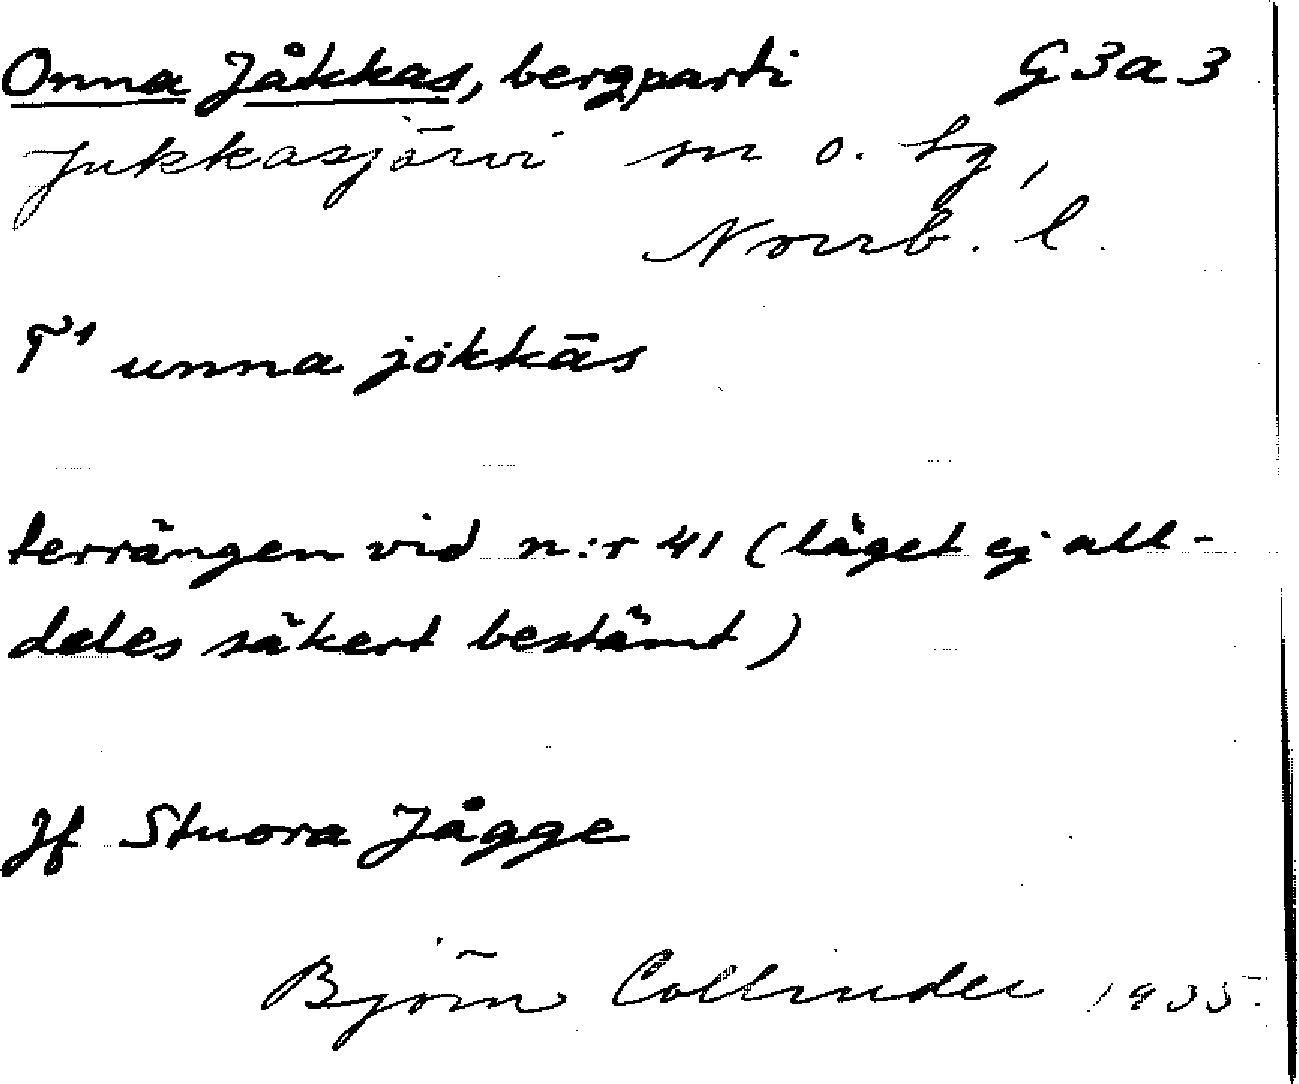 Onna Jåkkas, bergparti G 3 a 3
Jukkasjärvi sn o. tg,
Norrb. l.
T¹ unna jökkās
terrängen vid n:r 41 (läget ej all-
deles säkert bestämt)
Jf Stuora Jågge
Björn Collinder 1935.